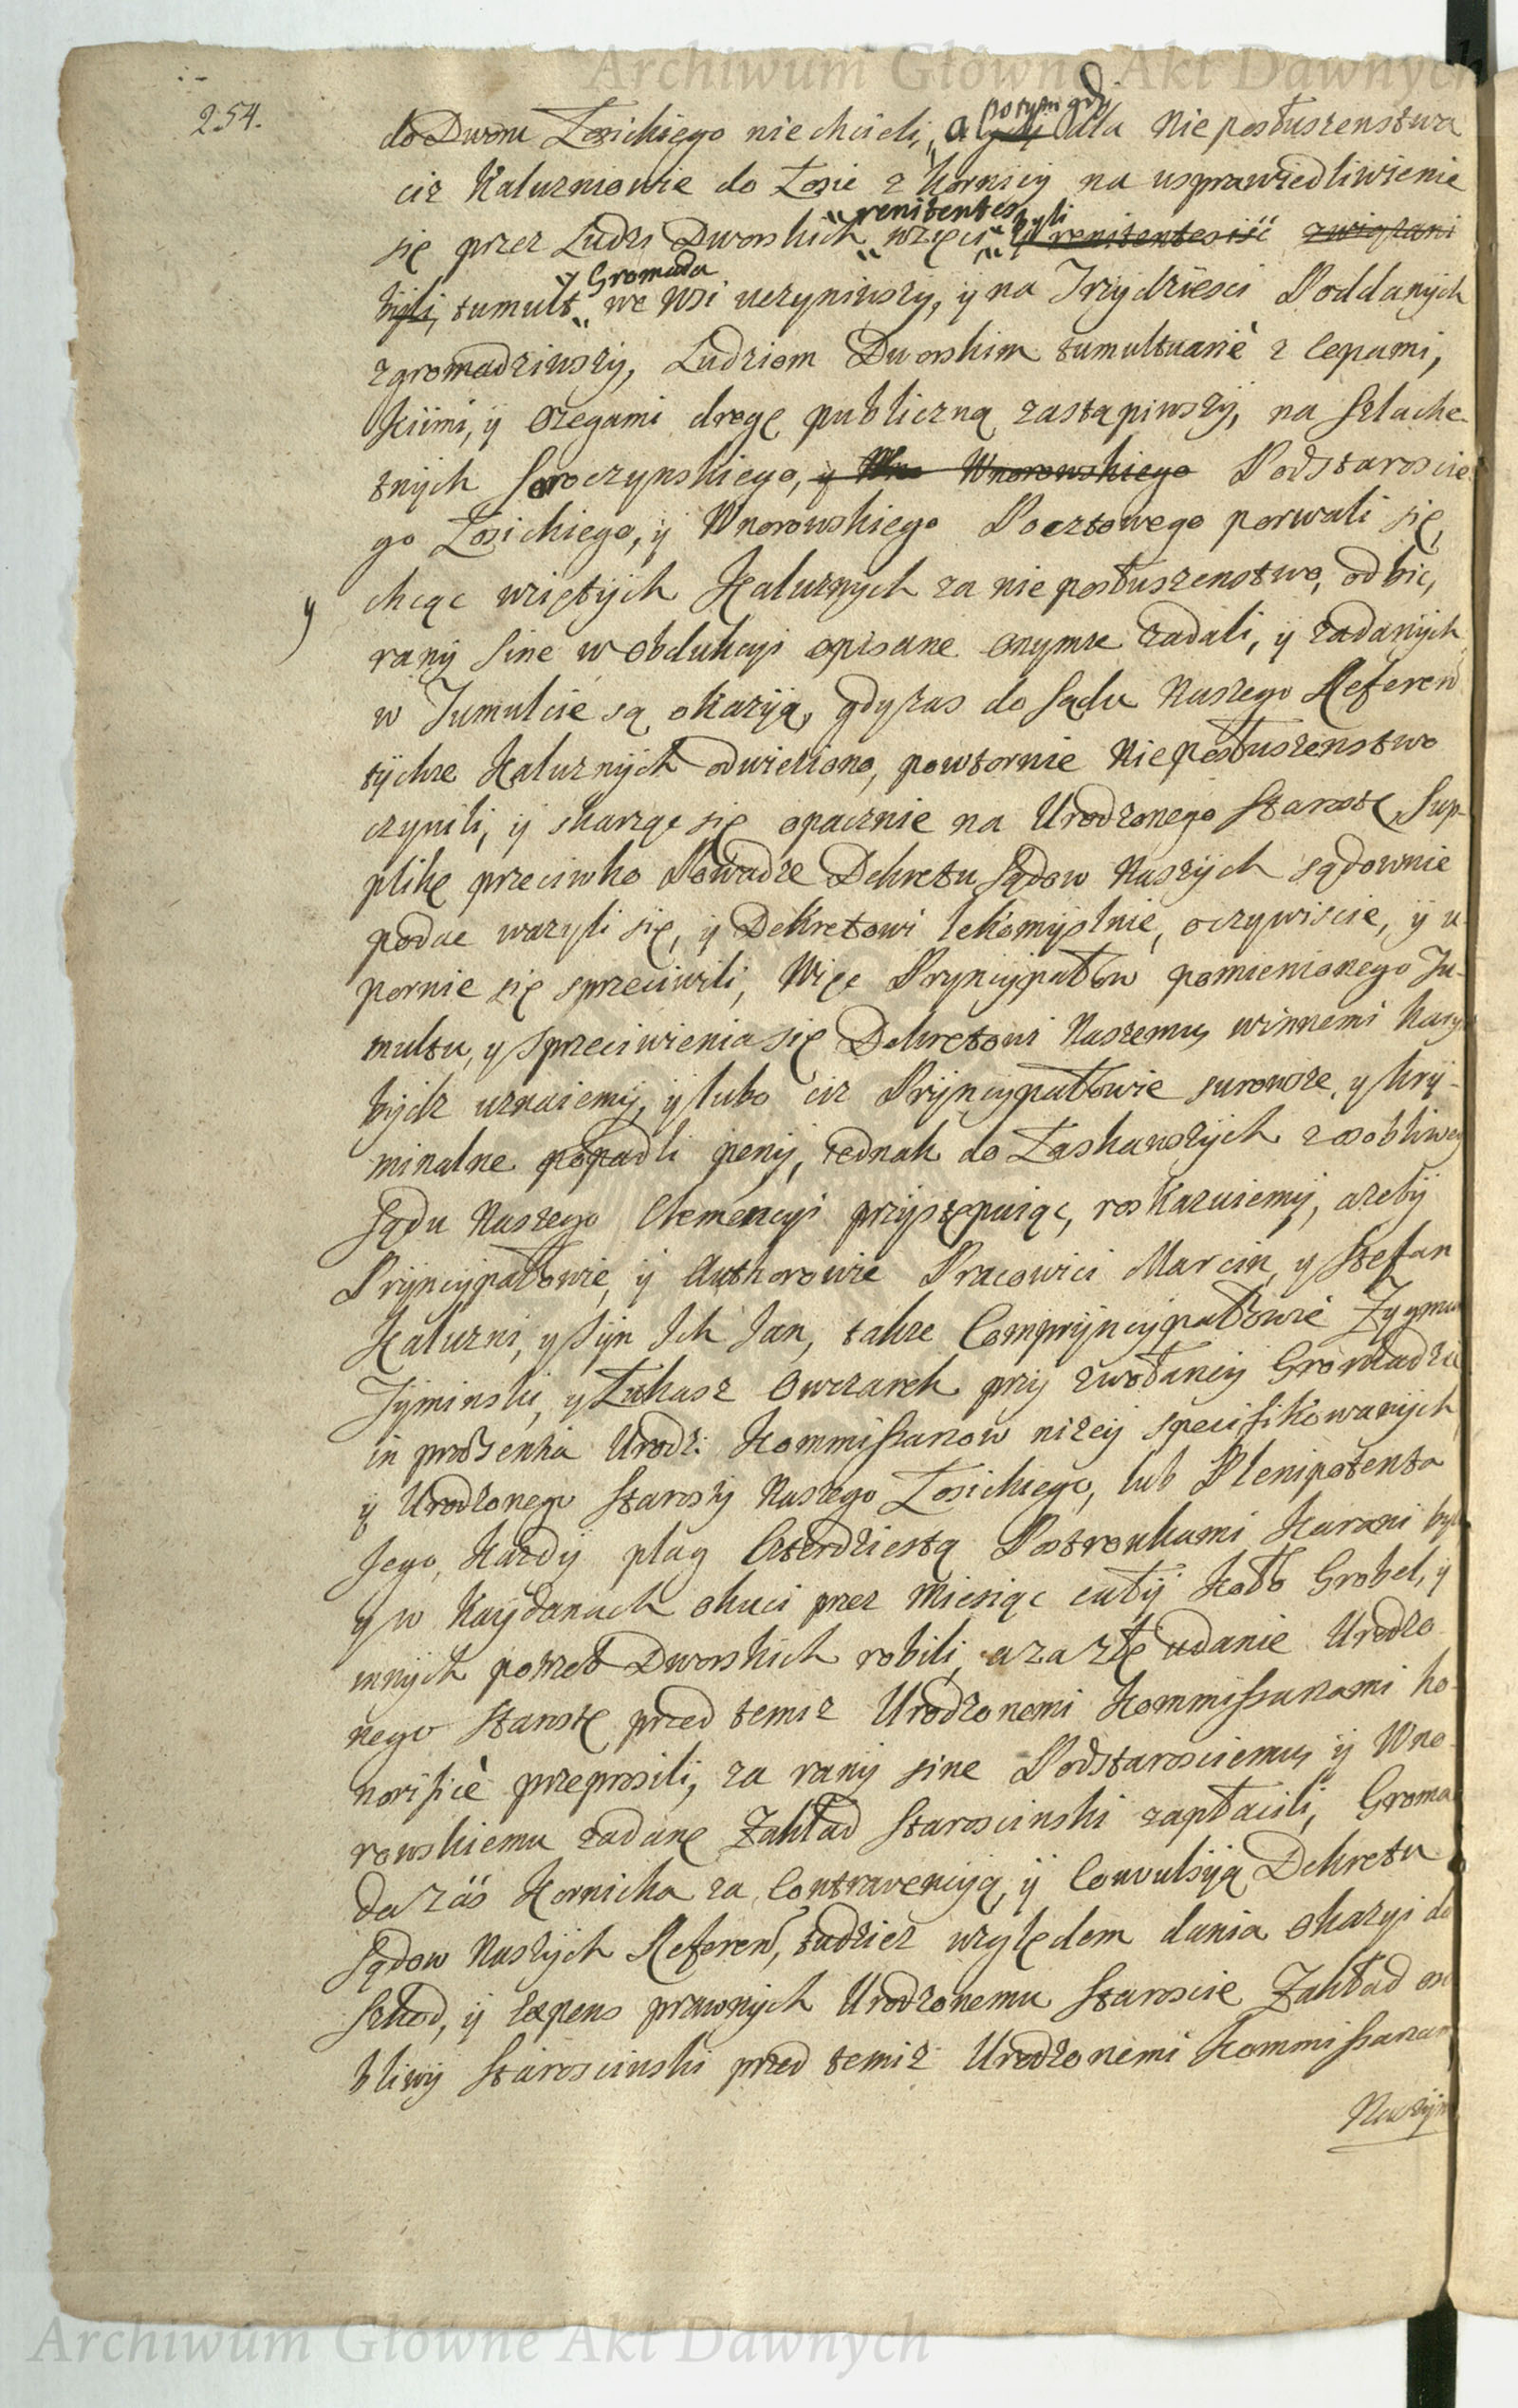 Archiwum Główne Akt Dawnych
254.
do Dworu Łosickiego niechcieli, a potym gdy gdy dla Nieposłuszenstwa
ciz Kaluzniowie do Łosic z Kornicy na usprawiedliwienie
się przez Ludzi Dworskich wzięci renitentes byli y renitentes iść związani
byli, tumult y Gromada we Wsi uczyniwszy, ÿ na Trzydziesci Poddanych
zgromadziwszy, Ludziom Dworskim tumultuariè z cepami,
Kiimi, ÿ Ozegami drogę publiczną zastąpiwszy, na Szlache-
tnych Soroczynskiego, y Wno Wnorowskiego Podstaroscie-
go Łosickiego, ÿ Wnorowskiego Pocztowego porwali się,
chcąc wziętych Kaluznych za nieposłuszenstwo, odbic,
y rany sine w obdukcyi opisane onymze zadali, ÿ zadanych
w Tumulcie są okazyą, gdy zas do Sądu Naszego Referen
tychze Kaluznych odwieziono, powtornie Nieposłuszenstwo
czynili, ÿ skarząc się opacznie na Urodzonego Starostę, Sup-
plikę przeciwko Powadze Dekretu Sądow Naszych sądownie
podac wazyli się, ÿ Dekretowi lekomyslnie, oczywiscie, ÿ u
pornie się sprzeciwili, Więc Pryncypałow pomienionego Tu-
multu, y sprzeciwienia się Dekretowi Naszemu, winnemi Kary
bydz uznaiemy, y lubo ciz Pryncypałowie surowsze, y kry-
minalne popadli peny, iednak do Łaskawszych z osobliwey
Sądu Naszego Clemencyi przystępuiąc, roskazuiemy, azeby
Pryncypałowie, ÿ Authorowie Pracowici Marcin, y Stefan
Kaluzni, y Syn Ich Jan, takze Compryncypałowie Zygmu
Tyminski, y Łukasz Owczarek przy zwołaney Gromadzie
in præsentia Urodz: Kommissarzow nizey specifikowanych
ÿ Urodzonego Starosty Naszego Łosickiego, lub Plenipotenta
Jego, Kazdy plag Czterdziestą Postronkami Karani byli
y w Kaydanach okuci przez Miesiąc cały Koło Grobel, y
innych potrzeb Dworskich robili, a za złe udanie Urodzo
nego Starostę przed temiz Urodzonemi Kommissarzami ho-
norificè przeprosili, za rany sine Podstarosciemu, ÿ Wno-
rowskiemu zadane Zakład Staroscinski zapłacili, Groma
da zás Kornicka za Contravencyą, ÿ Convulsyą Dekretu
Sądow Naszych Referen, tudziez względem dania okazyi do
Szkod, ÿ expens prawnych Urodzonemu Staroscie Zakład oso
bliwy Staroscinski przed temiz Urodzonemi Kommissarzam
Naszym
Archiwum Główne Akt Dawnych